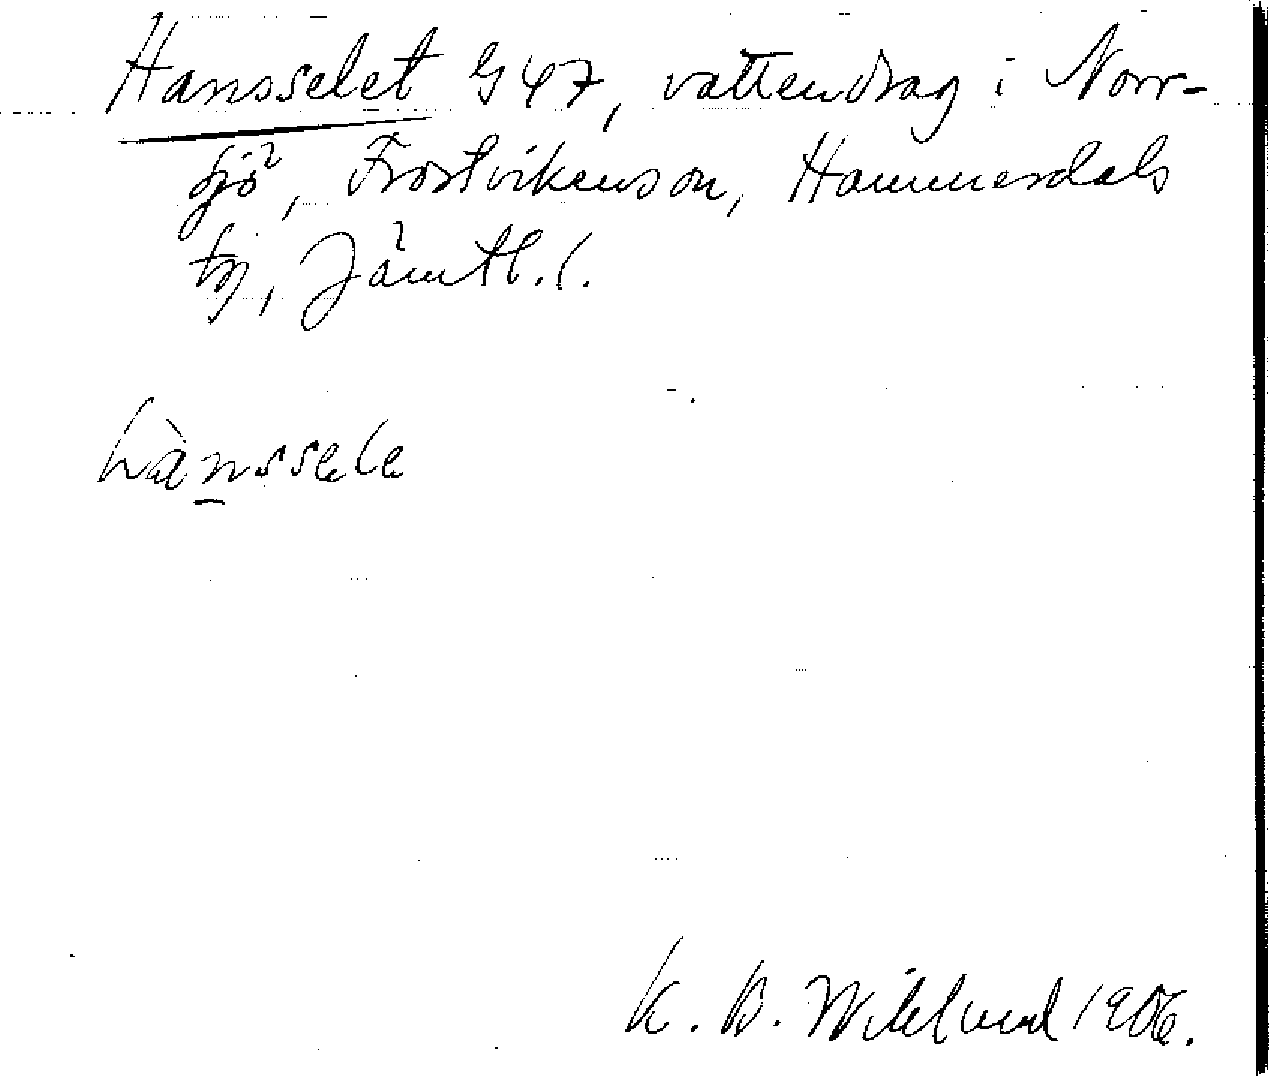 Hansselet G 47, vattendrag i Norr-
sjö, Frostvikens sn, Hammerdals
tg, Jämtl. l.
hànssele
K. B. Wiklund 1906.